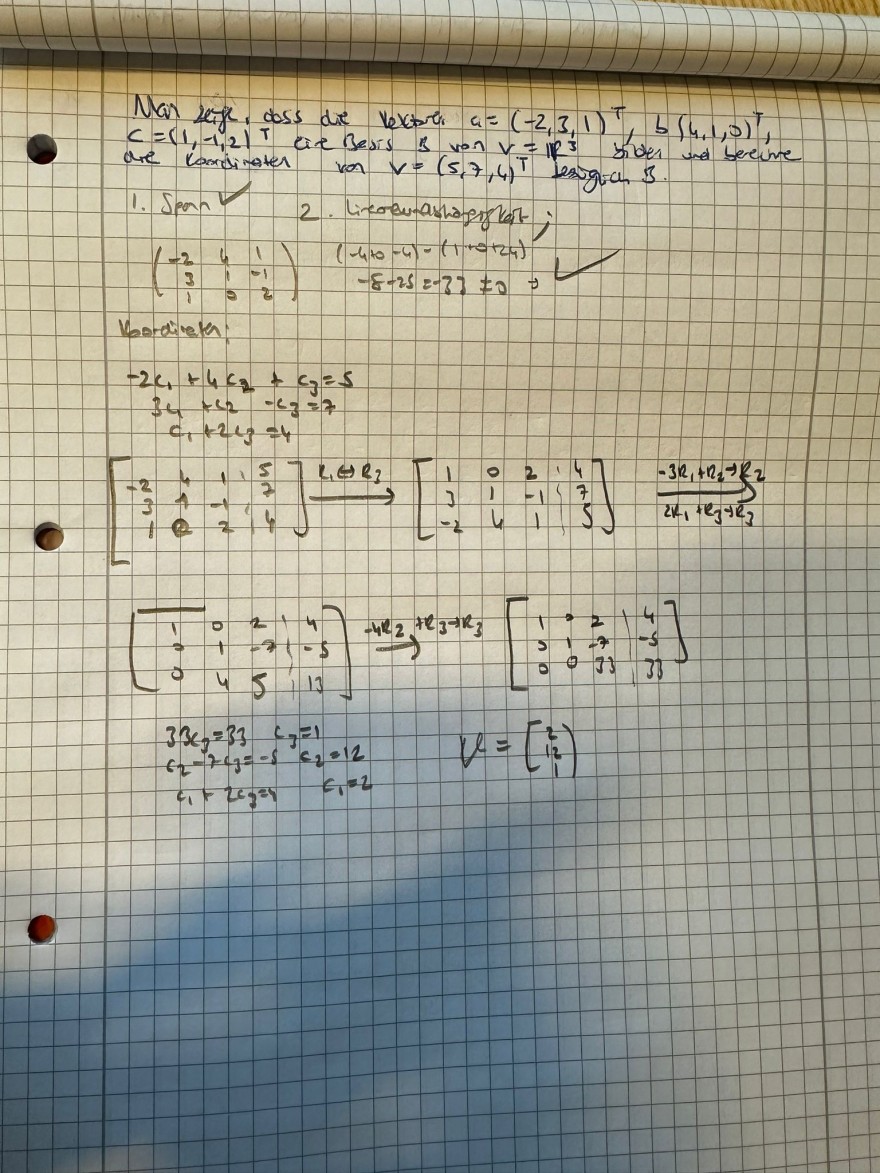 Man zeige, dass die Vektoren a = (-2,3,1)ᵀ, b(4,1,0)ᵀ,
c = (1,-1,2)ᵀ eine Basis B von V = ℝ³ bilden und berechne
die Koordinaten von v = (5,7,4)ᵀ bezüglich B.
1. Span ✓ 2. Linearunabhängigkeit;
-2 4 1
3 1 -1
1 0 2
(-4+0-4)-(1+0+24)
-8-25=-33 ≠0 → ✓
Koordinaten:
-2c₁ + 4c₂ + c₃ = 5
3c₁ + c₂ - c₃ = 7
c₁ + 2c₃ = 4
-2 4 1 | 5
3 1 -1 | 7
1 0 2 | 4
R₁↔R₃
1 0 2 | 4
3 1 -1 | 7
-2 4 1 | 5
-3R₁+R₂→R₂
2R₁+R₃→R₃
1 0 2 | 4
0 1 -7 | -5
0 4 5 | 13
-4R₂+R₃→R₃
1 0 2 | 4
0 1 -7 | -5
0 0 33 | 33
33c₃=33 c₃=1
c₂-7c₃=-5 c₂=12
c₁+2c₃=4 c₁=2
V =
2
12
1